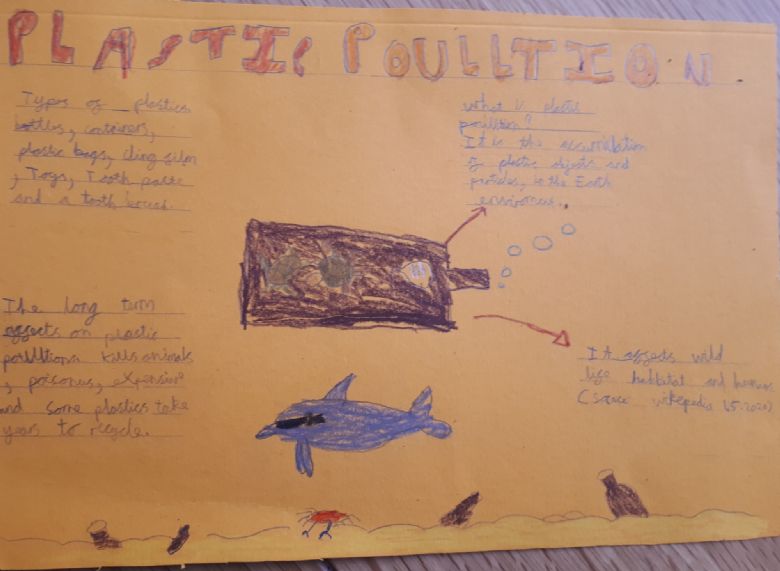 PLASTIC POULLTION
Types of plastics
bottles, containers,
plastic bags, cling film
, Toys, Tooth paste
and a tooth
what is plastic
poullition?
It is the accumulation
of plastic objects and
particles, to the Earth
The long term
affects on plastic
poullition kills animals
, poisonus, expensive
and some plastics take
years to recycle.
It affects wild
life habbitat and humans
(source wikepedia